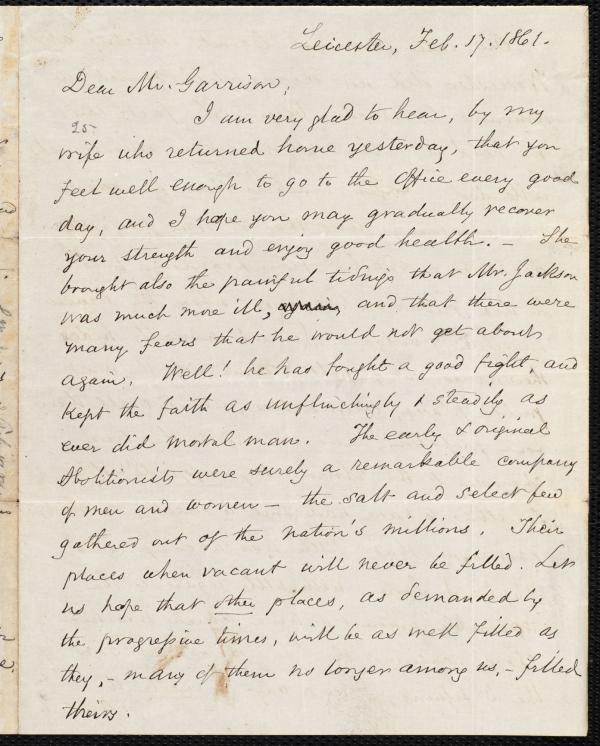 Leicester, Feb. 17. 1861.
Dear Mr. Garrison,
I am very glad to hear, by my
25
wife who returned home yesterday, that you
feel well enough to go to the office every good
day, and I hope you may gradually recover
your strength and enjoy good health. – She
brought also the painful tidings that Mr. Jackson
was much more ill, and that there were
many fears that he would not get about
again. Well! he has fought a good fight, and
kept the faith as unflinchingly & steadily as
ever did mortal man. The early & original
Abolitionists were surely a remarkable company
of men and women – the salt and select few
gathered out of the nation's millions. Their
places when vacant will never be filled. Let
us hope that other places, as demanded by
the progressive times, will be as well filled as
they, – many of them no longer among us, – filled
theirs.